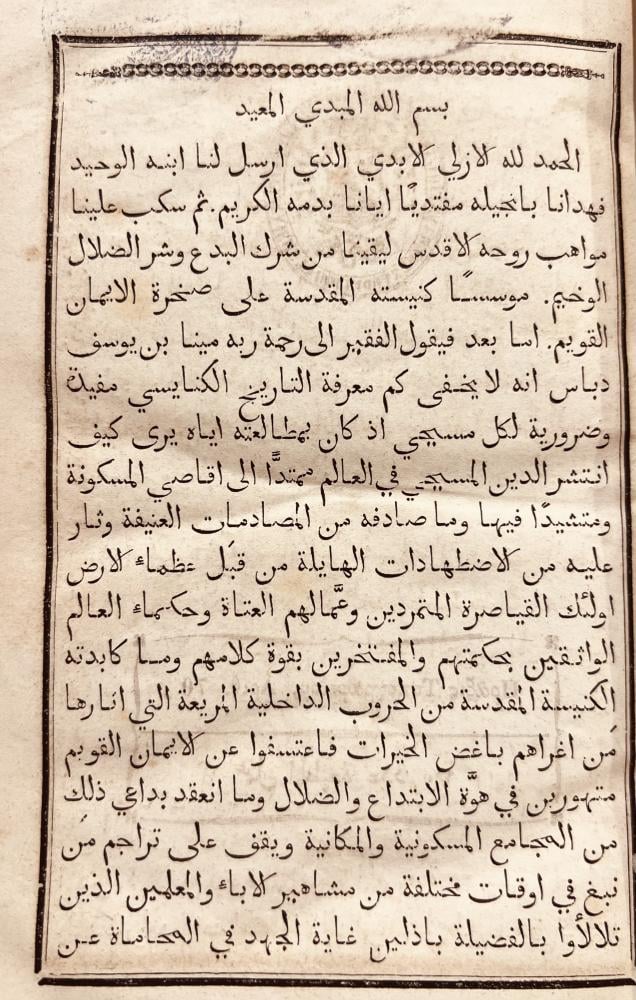 بسم الله المبدي المعيد
الحمد لله الازلي الابدي الذي ارسل لنا ابنه الوحيد
فهدانا بانجيله مفتديًا ايانا بدمه الكريم. ثم سكب علينا
مواهب روحه الاقدس ليقينا من شرك البدع وشر الضلال
الوخيم. موسسًا كنيسته المقدسة على صخرة الايمان
القويم. اما بعد فيقول الفقير الى رحمة ربه مينا بن يوسف
دباس انه لا يخفى كم معرفة التاريخ الكنايسي مفيدة
وضرورية لكل مسيحي اذ كان بمطالعته اياه يرى كيف
انتشر الدين المسيحي في العالم ممتدًّا الى اقاصي المسكونة
ومتشيدًا فيها وما صادفه من المصادمات العنيفة وثار
عليه من الاضطهادات الهايلة من قبَل عظماء الارض
اولئك القياصرة المتمردين وعمَّالهم العتاة وحكماء العالم
الواثقين بحكمتهم والمفتخرين بقوة كلامهم وما كابدته
الكنيسة المقدسة من الحروب الداخلية المريعة التي اثارها
مَن اغراهم باغض الخيرات فاعتسفوا عن الايمان القويم
متهورين في هوَّة الابتداع والضلال وما انعقد بداعي ذلك
من المجامع المسكونية والمكانية ويقف على تراجم مَن
نبغ في اوقات مختلفة من مشاهير الاباء والمعلمين الذين
تلالأوا بالفضيلة باذلين غاية الجهد في المحاماة عن